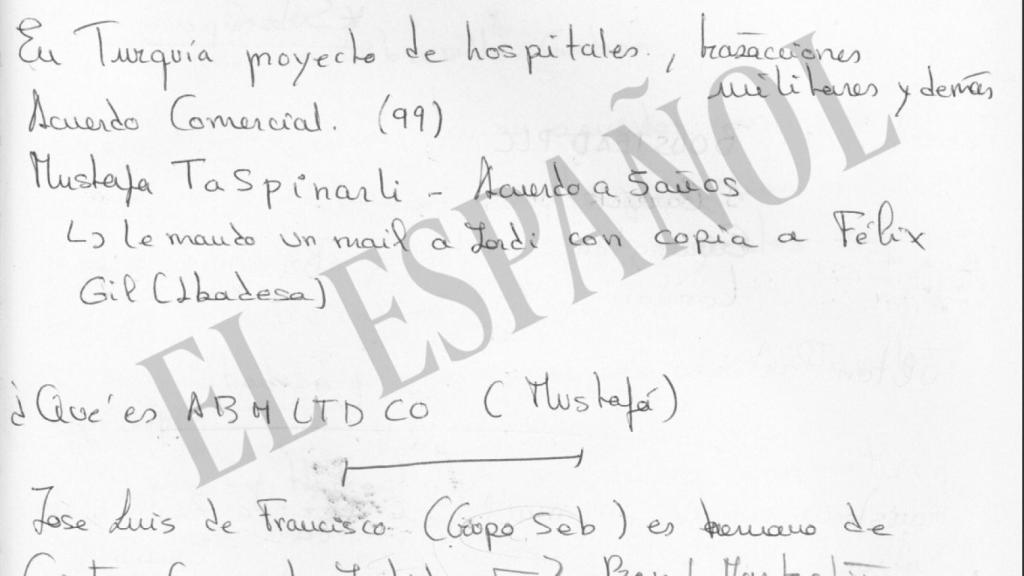 En Turquía proyecto de hospitales, trasacciones
militares y demás
Acuerdo Comercial. (99)
Mustafa Taspinarli - Acuerdo a 5 años
↳ le mando un mail a Jordi con copia a Félix
Gil (Ibadesa)
EL ESPAÑOL
¿Qué es ABM LTD CO (Mustafá)
Jose Luis de Francisco (Gropo Seb) es hermano de